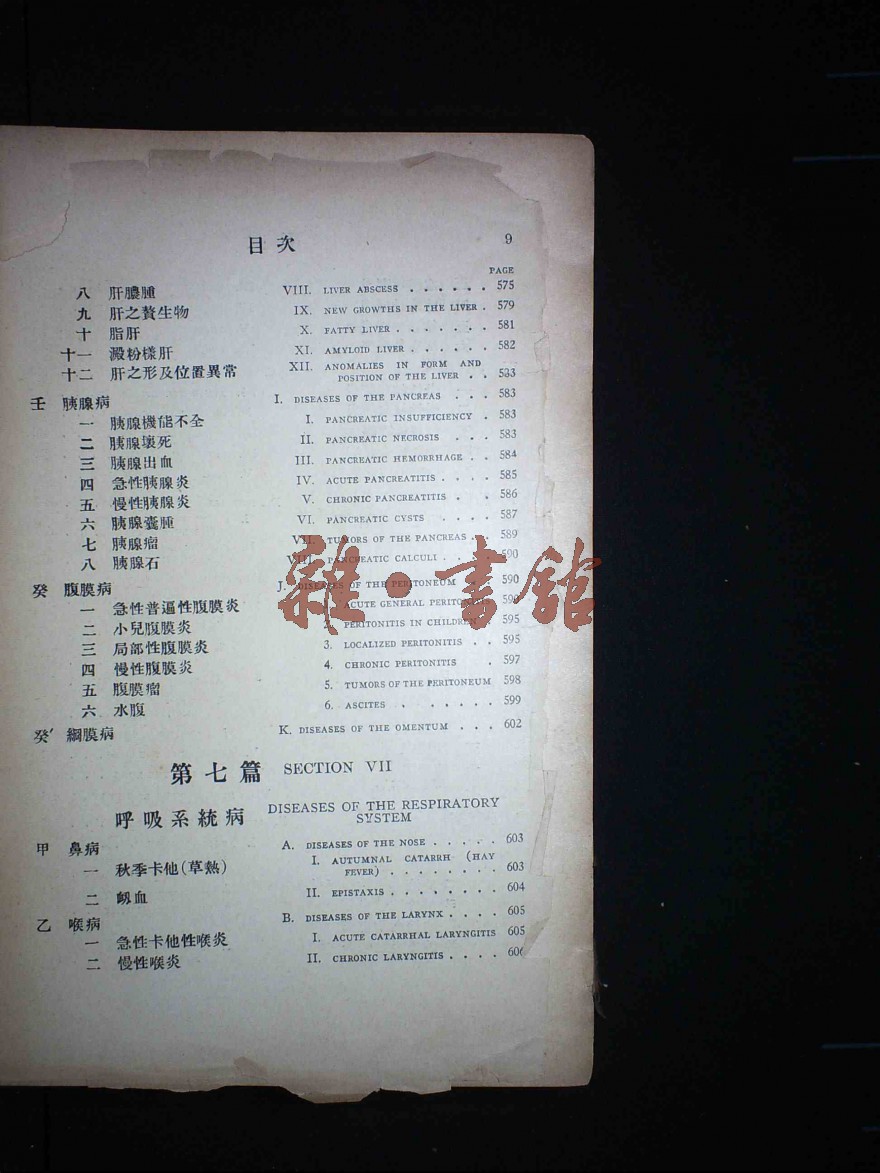 目次 9
PAGE
八 肝膿腫 VIII. LIVER ABSCESS . . . . . . 575
九 肝之贅生物 IX. NEW GROWTHS IN THE LIVER . 579
十 脂肝 X. FATTY LIVER . . . . . . . 581
十一 澱粉樣肝 XI. AMYLOID LIVER . . . . . . 582
十二 肝之形及位置異常 XII. ANOMALIES IN FORM AND
POSITION OF THE LIVER . . 533
壬 胰腺病 I. DISEASES OF THE PANCREAS . . . 583
一 胰腺機能不全 I. PANCREATIC INSUFFICIENCY . 583
二 胰腺壞死 II. PANCREATIC NECROSIS . . . 583
三 胰腺出血 III. PANCREATIC HEMORRHAGE . . 584
四 急性胰腺炎 IV. ACUTE PANCREATITIS . . . . 585
五 慢性胰腺炎 V. CHRONIC PANCREATITIS . . 586
六 胰腺囊腫 VI. PANCREATIC CYSTS . . . . 587
七 胰腺瘤 VII. TUMORS OF THE PANCREAS . . 589
八 胰腺石 VIII. PANCREATIC CALCULI . . . . 590
癸 腹膜病 J. DISEASES OF THE PERITONEUM 590
一 急性普遍性腹膜炎 ACUTE GENERAL PERITONITIS
二 小兒腹膜炎 2. PERITONITIS IN CHILDREN 595
三 局部性腹膜炎 3. LOCALIZED PERITONITIS . . 595
四 慢性腹膜炎 4. CHRONIC PERITONITIS . 597
五 腹膜瘤 5. TUMORS OF THE PERITONEUM 598
六 水腹 6. ASCITES . . . . . . . 599
癸′ 綱膜病 K. DISEASES OF THE OMENTUM . . . 602
第七篇 SECTION VII
呼吸系統病 DISEASES OF THE RESPIRATORY
SYSTEM
甲 鼻病 A. DISEASES OF THE NOSE . . . . . 603
一 秋季卡他(草熱) I. AUTUMNAL CATARRH (HAY
FEVER) . . . . . . . . 603
二 衂血 II. EPISTAXIS . . . . . . . . 604
乙 喉病 B. DISEASES OF THE LARYNX . . . . 605
一 急性卡他性喉炎 I. ACUTE CATARRHAL LARYNGITIS 605
二 慢性喉炎 II. CHRONIC LARYNGITIS . . . . 606
雜·書館